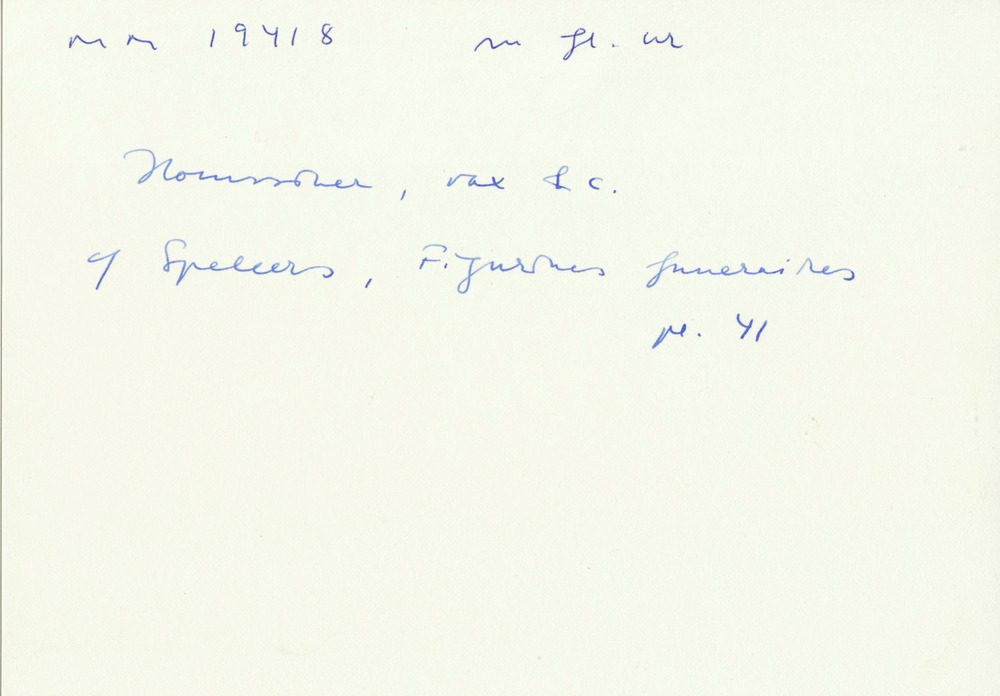 MM 19418 m fl. ur
Horussöner, vax & c.
cf Speleers, Figurines funeraires
pl. 41